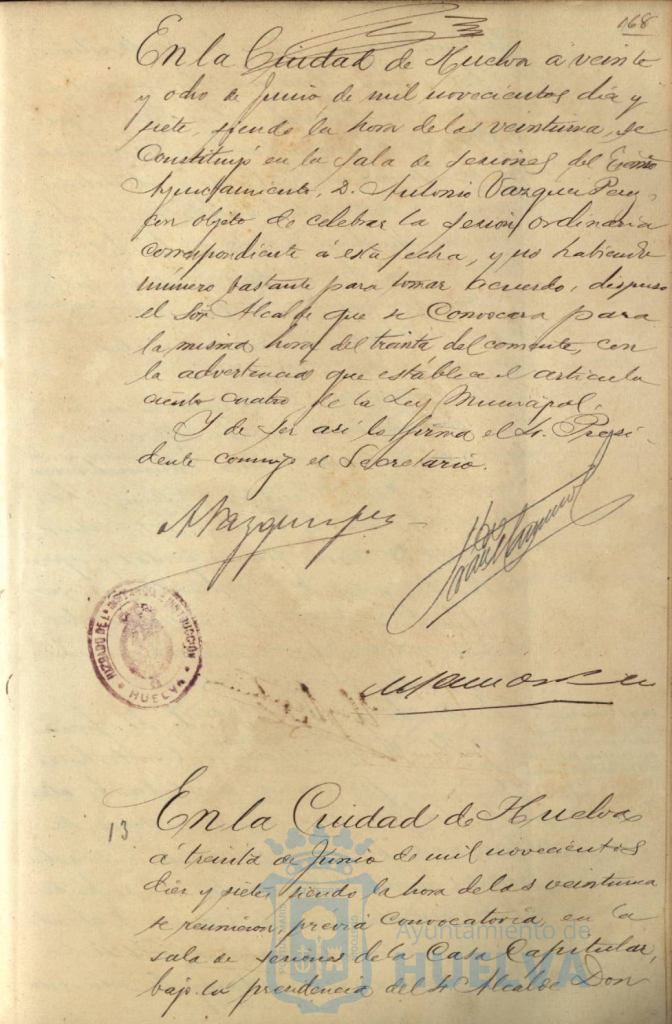 168
En la Ciudad de Huelva á veinte
y ocho de Junio de mil novecientos diez y
siete, siendo la hora de las veintiuna, se
Constituyó en la sala de sesiones del Excmo
Ayuntamiento, D. Antonio Vazquez Perez,
con objeto de celebrar la sesion ordinaria
correspondiente á esta fecha, y no habiendo
número bastante para tomar acuerdo, dispuso
el Sor. Alcalde que se Convocara para
la misma hora del treinta del corriente, con
la advertencia que establece el articulo
ciento cuatro de la Ley Municipal.
Y de ser así lo firma el Sr. Presi
dente conmigo el Secretario.
A Vazquez Perez
JUZGADO DE 1ª INSTANCIA E INSTRUCCIÓN
HUELVA
13
En la Ciudad de Huelva
á treinta de Junio de mil novecientos
diez y siete, siendo la hora de las veintiuna
se reunieron, previa convocatoria, en la
sala de sesiones de la Casa Capitular,
bajo la presidencia del Sr. Alcalde Don
Ayuntamiento de
HUELVA